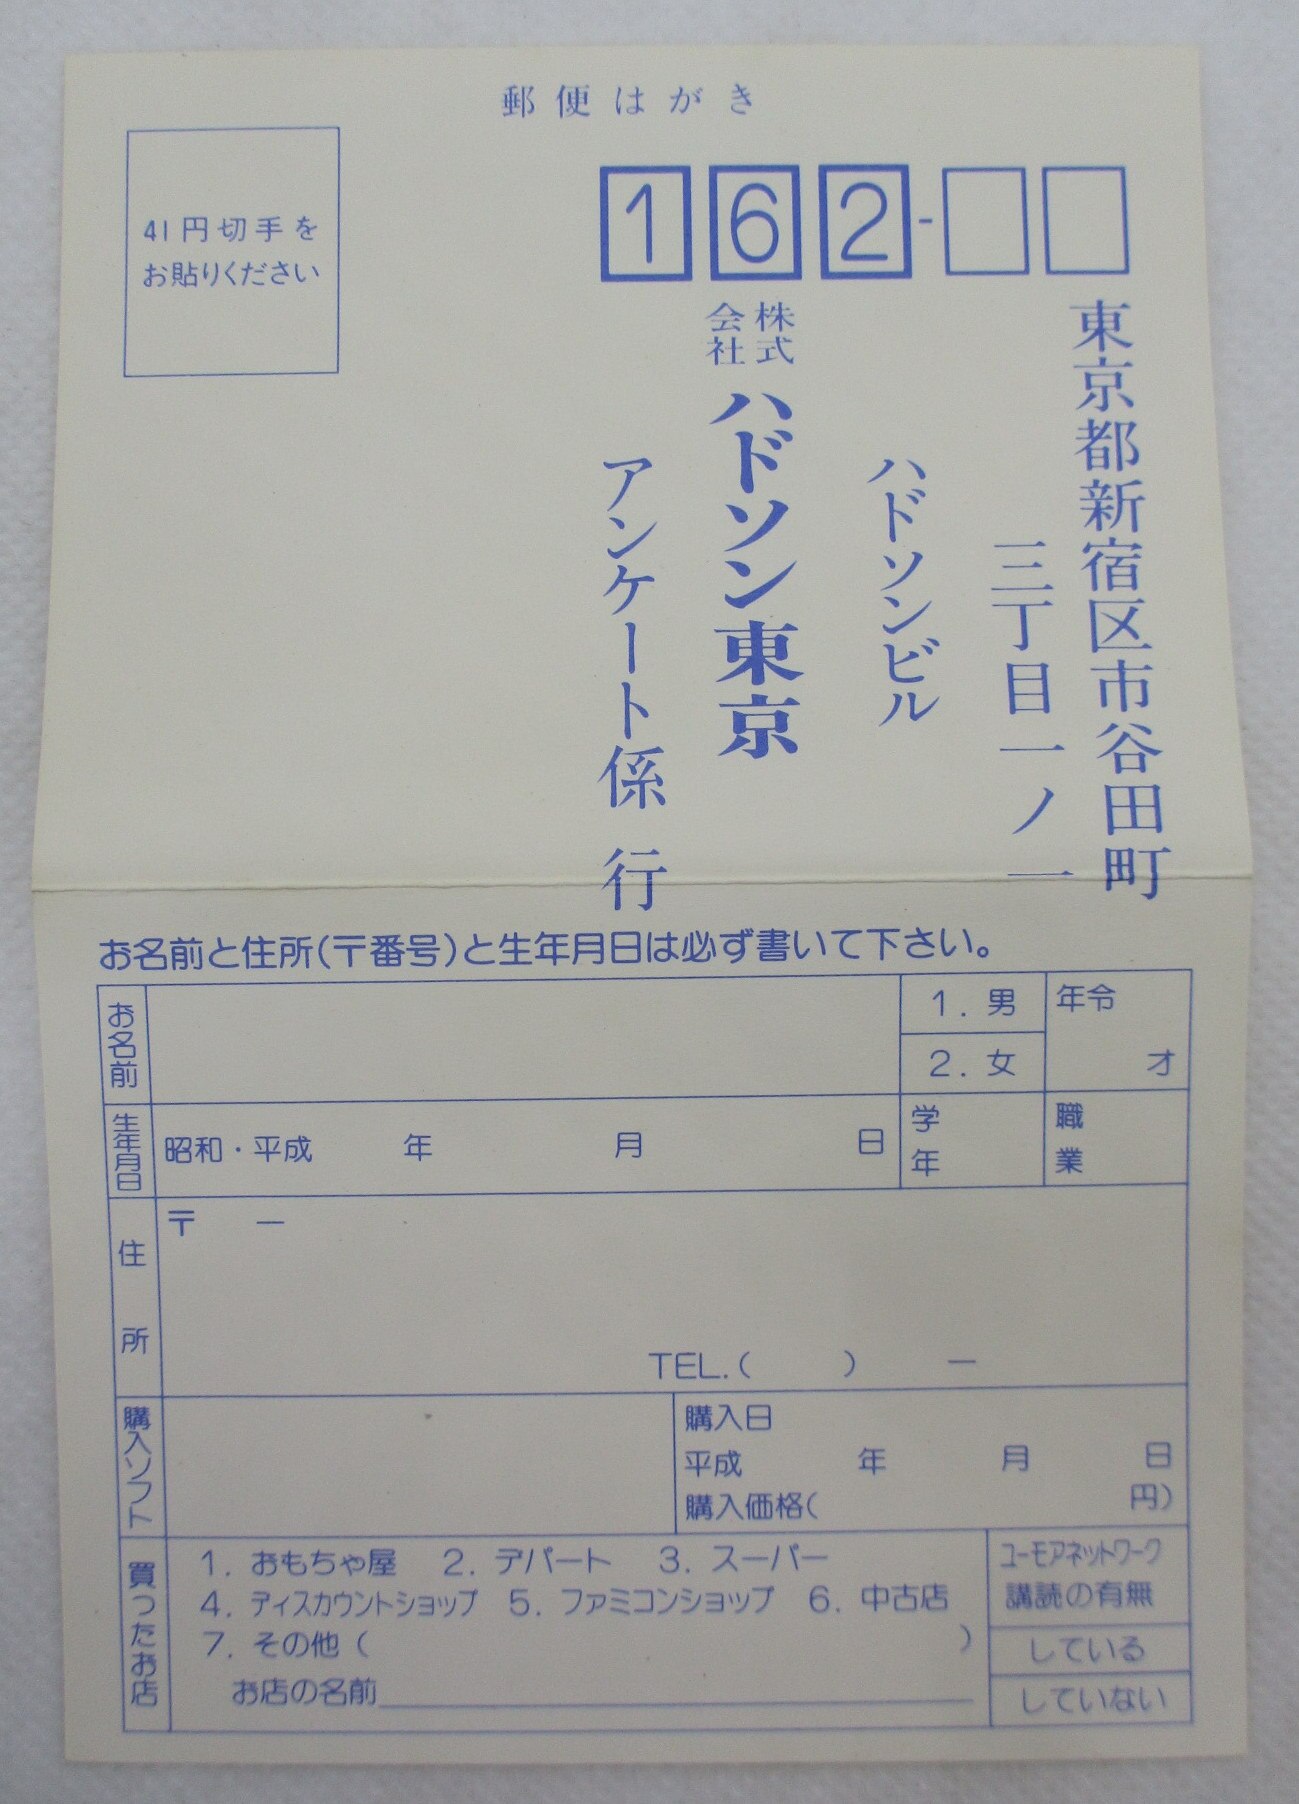 郵便はがき
41円切手を
お貼りください
162-
東京都新宿区市谷田町
三丁目一ノ一
ハドソンビル
株式会社 ハドソン東京
アンケート係 行
お名前と住所(〒番号)と生年月日は必ず書いて下さい。
お名前
1. 男
2. 女
年令
才
生年月日
昭和・平成 年 月 日
学年
職業
住所
〒 ー
TEL.( ) ー
購入ソフト
購入日
平成 年 月 日
購入価格( 円)
買ったお店
1. おもちゃ屋 2. デパート 3. スーパー
4. ディスカウントショップ 5. ファミコンショップ 6. 中古店
7. その他 ( )
お店の名前
ユーモアネットワーク
講読の有無
している
していない